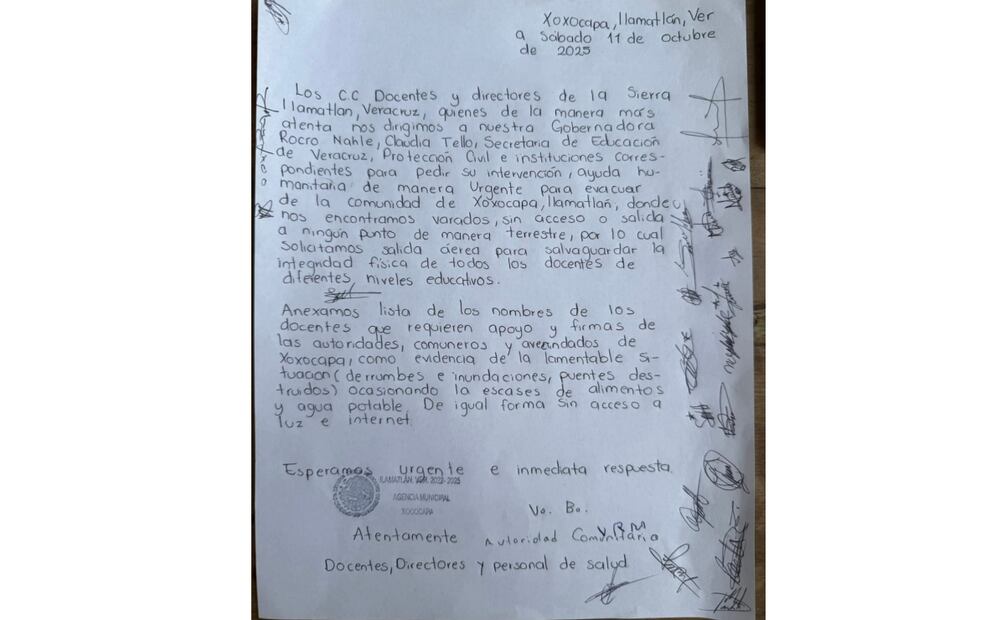 Xoxocapa, Ilamatlán, Ver
a Sábado 11 de octubre
de 2025
Los C.C Docentes y directores de la Sierra
Ilamatlan, Veracruz, quienes de la manera más
atenta nos dirigimos a nuestra Gobernadora
Rocro Nahle, Claudia Tello, Secretaria de Educación
de Veracruz, Protección Civil e instituciones corres-
pondientes para pedir su intervención, ayuda hu-
manitaria de manera Urgente para evacuar
de la comunidad de Xoxocapa, Ilamatlan, donde
nos encontramos varados, sin acceso o salida
a ningún punto de manera terrestre, por lo cual
Solicitamos salida áerea para salvaguardar la
integridad física de todos los docentes de
diferentes niveles educativos.
Anexamos lista de los nombres de los
docentes que requieren apoyo y firmas de
las autoridades, comuneros y avecindados de
Xoxocapa, como evidencia de la lamentable si-
tuación (derrumbes e inundaciones, puentes des-
truidos) ocasionando la escases de alimentos
y agua potable. De igual forma sin acceso a
luz e internet.
Esperamos urgente e inmediata respuesta.
ILAMATLÁN, VER. 2022-2025
AGENCIA MUNICIPAL
XOCOCAPA
Vo. Bo.
Atentamente Autoridad Comunitaria
Docentes, Directores y personal de salud